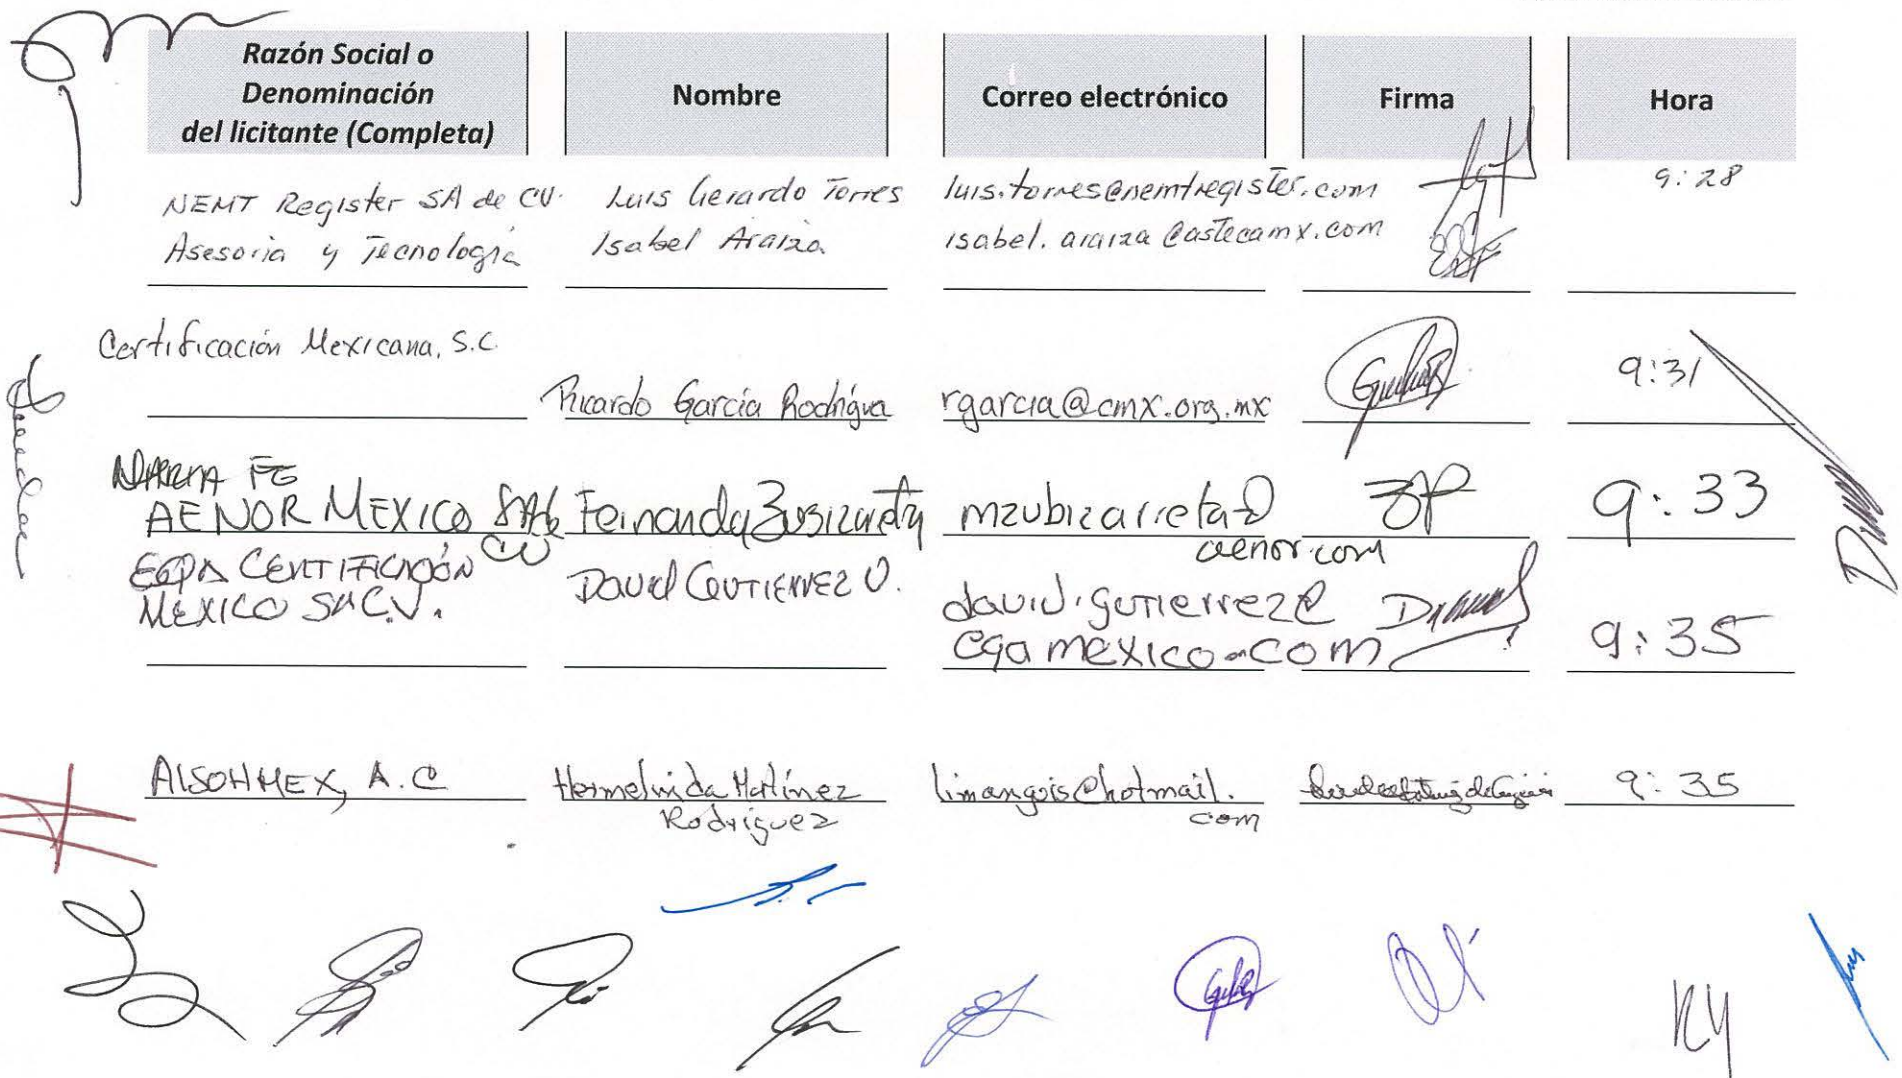 Razón Social o
Denominación
del licitante (Completa)
Nombre
Correo electrónico
Firma
Hora
NEMT Register SA de CV.
Asesoria y Tecnología
Luis Gerardo Torres
Isabel Araiza
luis.torres@nemtregister.com
isabel.araiza@astecamx.com
9:28
Certificación Mexicana, S.C.
Ricardo García Rodrígua
rgarcia@cmx.org.mx
9:31
AENOR MEXICO SA de
CV
Fernanda Zubizarreta
mzubizarreta@
aenor.com
9:33
EQA CERTIFICACIÓN
MEXICO SACV.
David Gutierrez V.
david.gutierrez@
eqamexico.com
9:35
AlSOHMEX, A.C
Hermelinda Martínez
Rodríguez
limangois@hotmail.
com
9:35